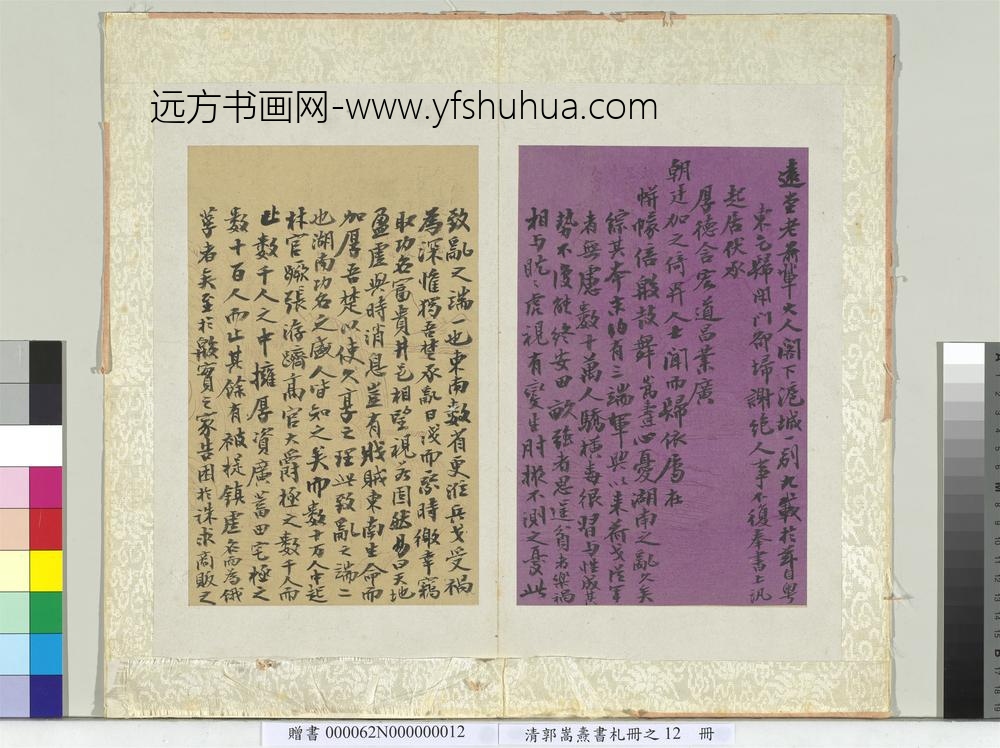 远方书画网-www.yfshuhua.com
遠堂老前輩大人閣下滬城一別九載於茲自粤
東乞歸閉門卻埽謝絕人事不復奉書上訊
起居伏承
厚德含宏道昌業廣
朝廷加之倚畀人士聞而歸依屬在
帡幪倍殷鼓舞嵩燾心憂湖南之亂久矣
綜其本末約有三端軍興以來荷戈從軍
者無慮數十萬人驕橫毒很習與性成其
勢不復能終安田畝強者思逞翕者樂禍
相與眈眈虎視有變生肘掖不測之憂此
致亂之端一也東南數省更淮兵戈受禍
為深惟獨吾楚承亂日淺而際時徼幸竊
取功名富貴井邑相望視為固然易曰天地
盈虛與時消息豈有戕賊東南生命而
加厚吾楚以使久享之理此致亂之端二
也湖南功名之盛人皆知之矣而數十萬人中起
材官蹶張洊躋高官大爵極之數千人而
止數千人之中擁厚資廣蓄田宅極之
數十百人而止其餘有被提鎮虛名而為餓
莩者矣至於殷實之家告困於誅求商販之
贈書 000062N000000012
清郭嵩燾書札冊之 12 冊